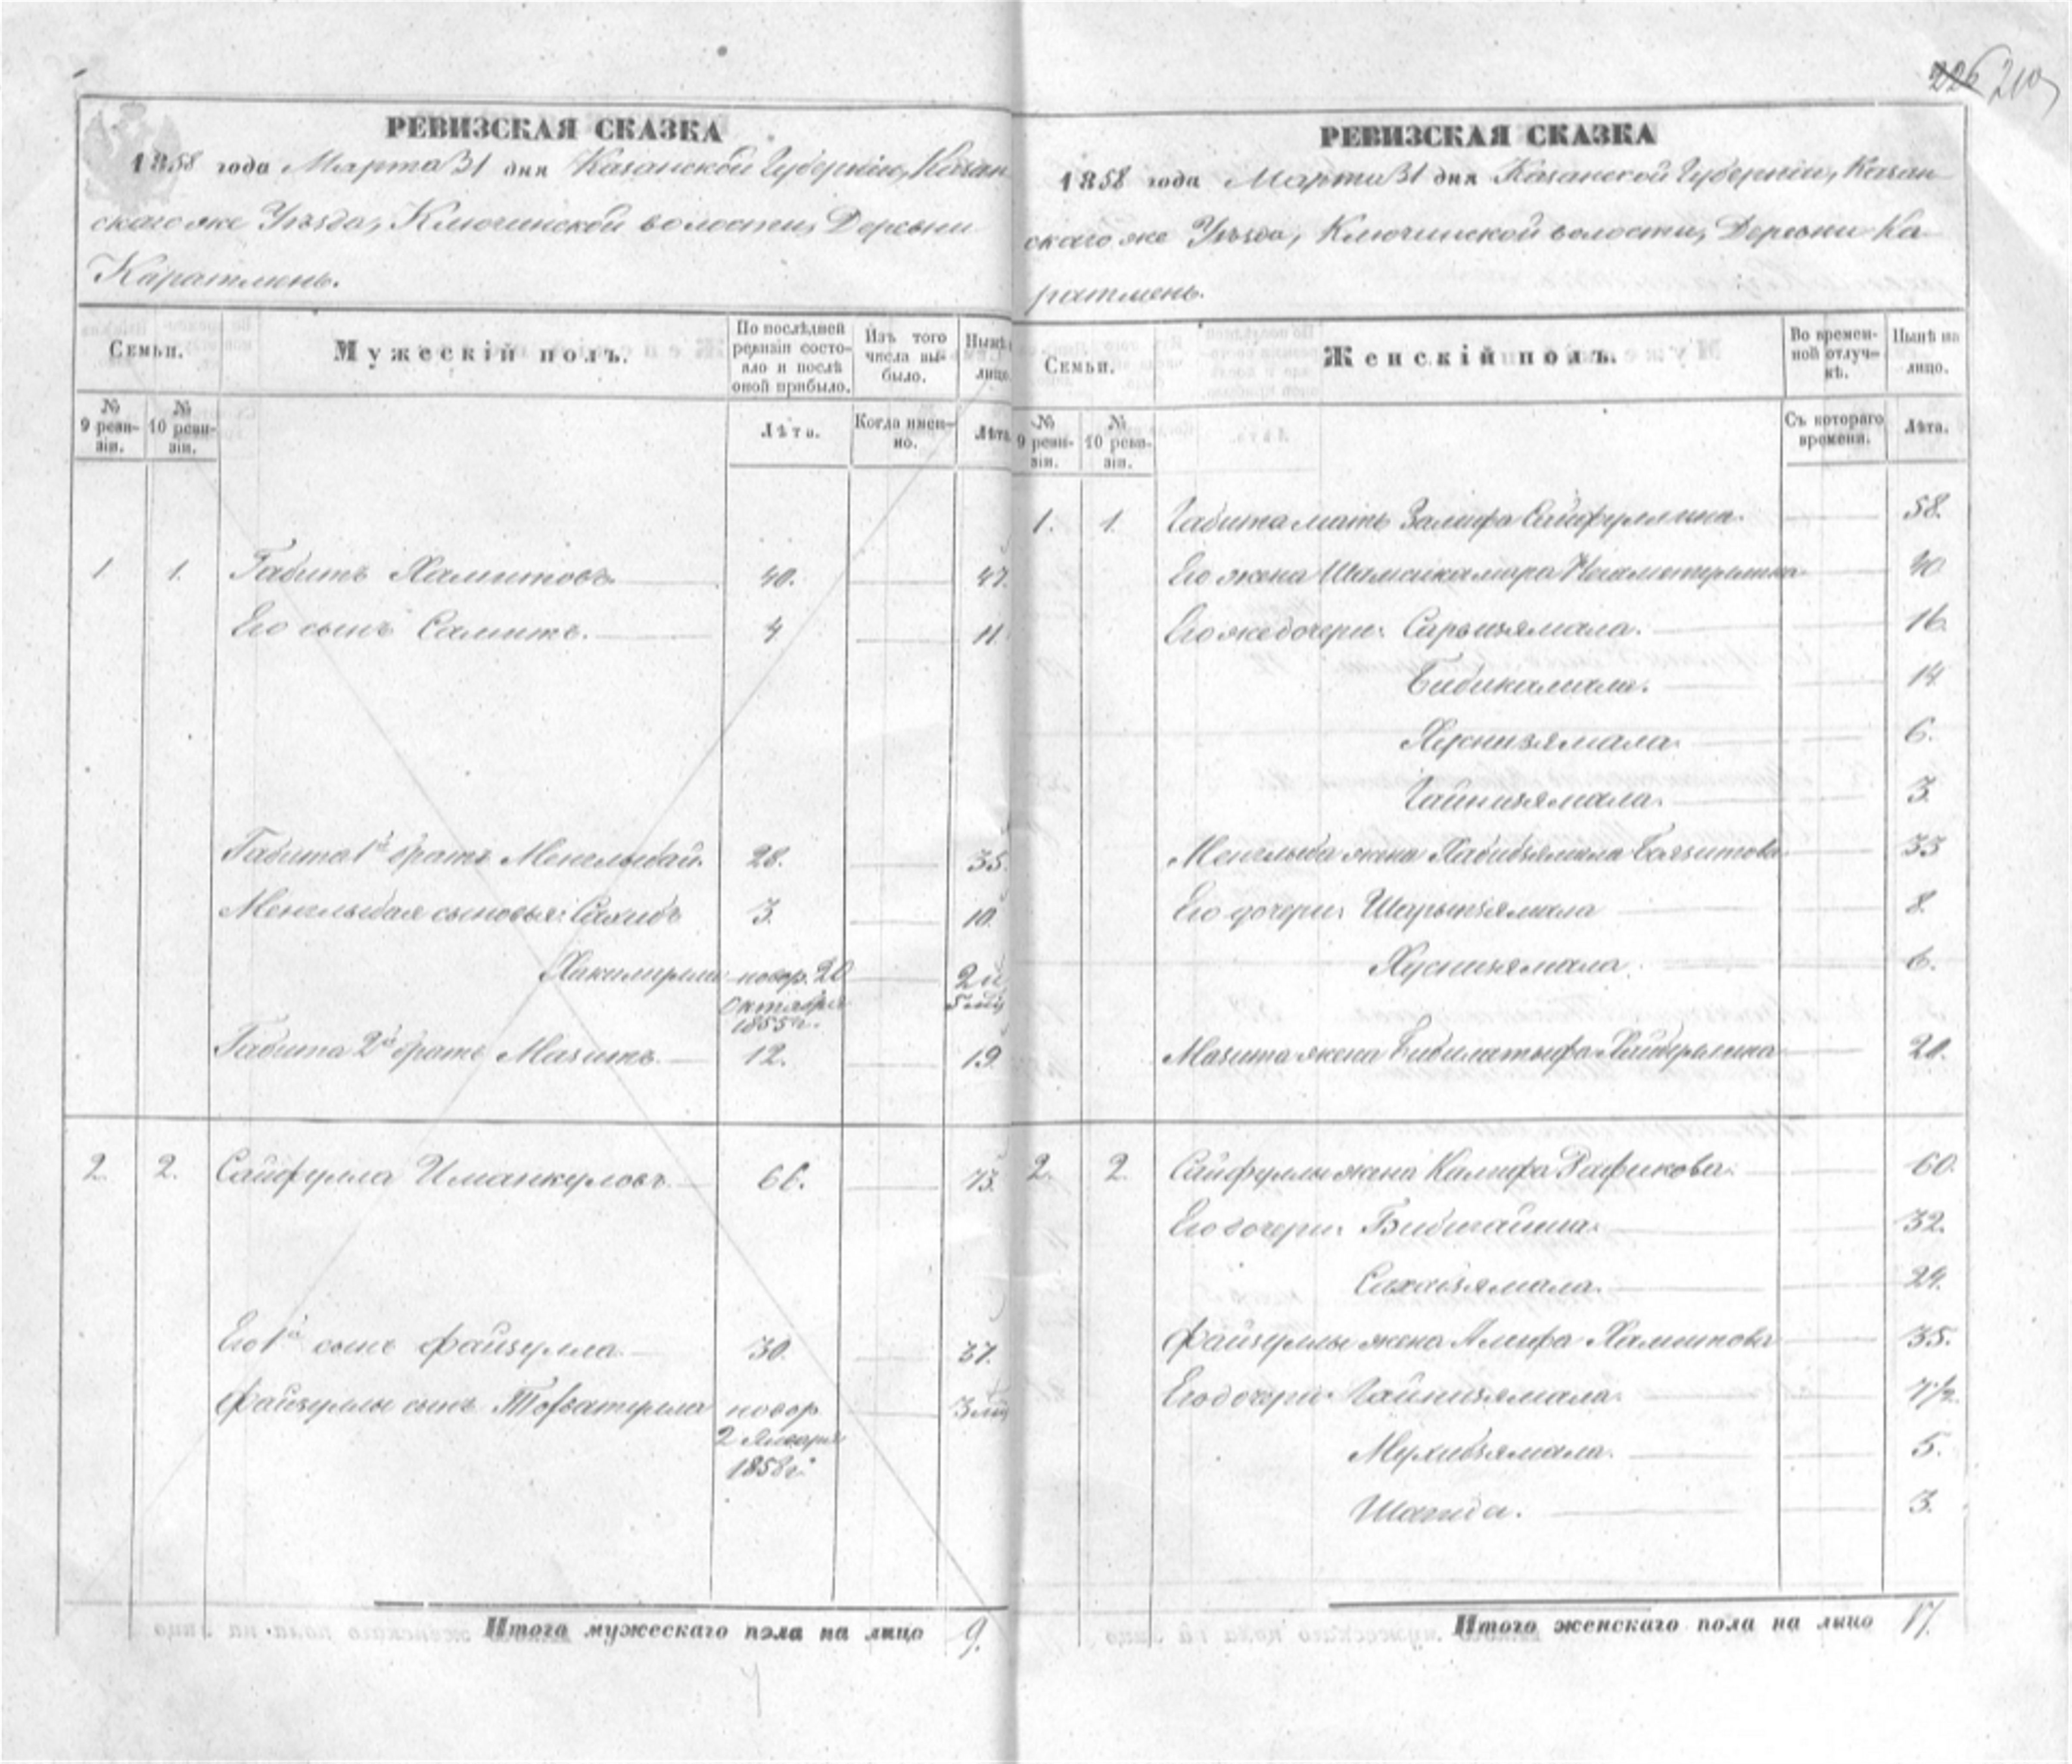 210
РЕВИЗСКАЯ СКАЗКА
1858 года Марта 31 дня Казанской Губернiи, Казан
скаго же Уѣзда, Ключинской волости, Деревни
Каратмень.
Семьи.
Мужескiй полъ.
По послѣдней ревизiи состояло и послѣ оной прибыло.
Изъ того числа выбыло.
Нынѣ лицо.
№ 9 ревизiи.
№ 10 ревизiи.
Лѣта.
Когда именно.
Лѣта
1 1. Габитъ Хамитовъ 40. 47.
Его сынъ Салитъ. 4 11.
Габита 1й братъ Менглыбай. 28. 35.
Менглыбая сыновья: Сахибъ 3. 10.
новор. 20 Октября 1855 г.
Габита 2й братъ Мазитъ 12. 19
2. 2. Сайфулла Иманкуловъ 66. 73.
Его 1й сынъ Файзулла 30. 37.
Файзуллы сынъ новор. 2 Января 1858 г.
Итого мужескаго пола на лицо 9.
РЕВИЗСКАЯ СКАЗКА
1858 года Марта 31 дня Казанской Губернiи, Казан
скаго же Уѣзда, Ключинской волости, Деревни Ка
ратмень.
Семьи.
Женскiй полъ.
Во временной отлучкѣ.
Нынѣ на лицо.
№ 9 ревизiи.
№ 10 ревизiи.
Съ котораго времени.
Лѣта.
1. 1. Габита мать Залифа Сайфуллина. 58.
Его жена Шамсикамара 40
Его же дочери: 16.
Бибикамала. 14
Хуснизямала. 6.
Гайнизямала. 3
Менглыба жена Хабибзямала Баязитова 33
Его дочери: 8.
Хуснизямала. 6.
Мазита жена Бибилатыфа 20.
2. 2. Сайфуллы жена Калифа Рафикова. 60.
Его дочери: Бибигайша. 32.
29.
Файзуллы жена Алифа Хамитова 35.
Его дочери: Гайнизямала. 7½
Мухибзямала. 5.
3.
Итого женскаго пола на лицо 17.